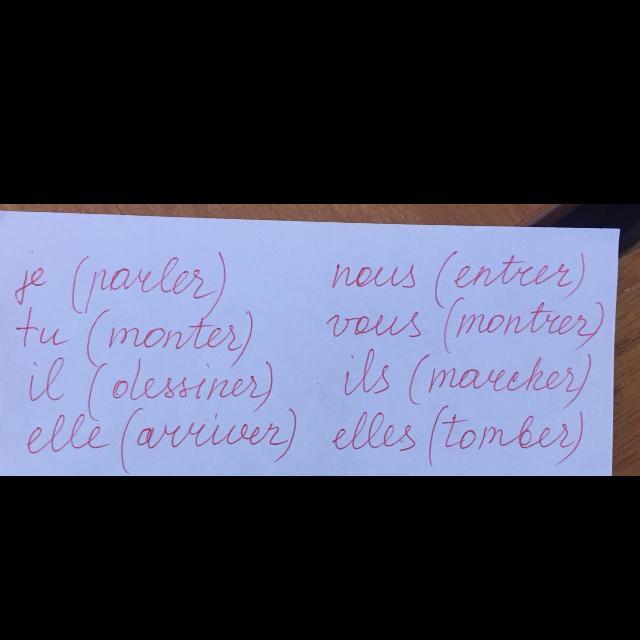 je (parler) nous (entrer)
tu (monter) vous (montrer)
il (dessiner) ils (marcher)
elle (arriver) elles (tomber)